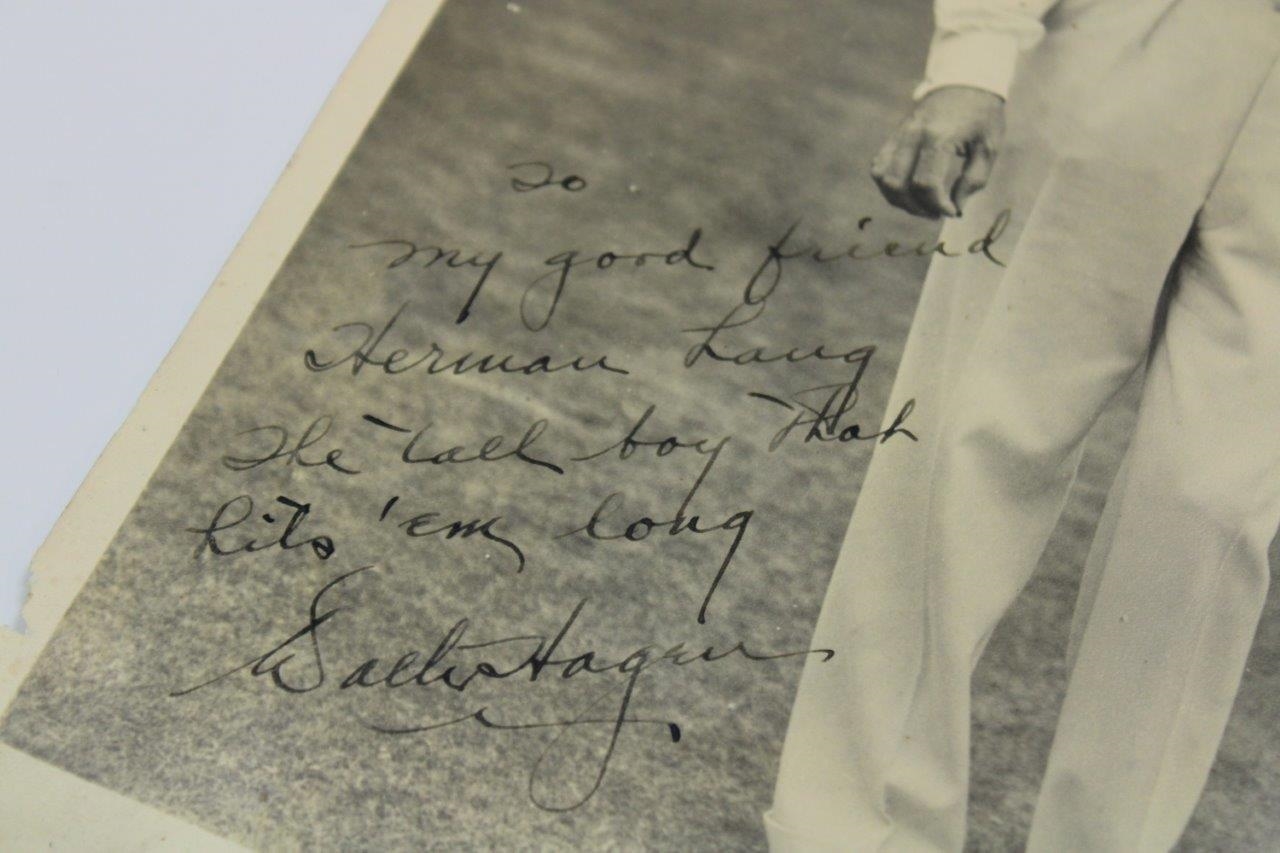 To
my good friend
Herman Lang
The tall boy that
hits 'em long
Walter Hagen